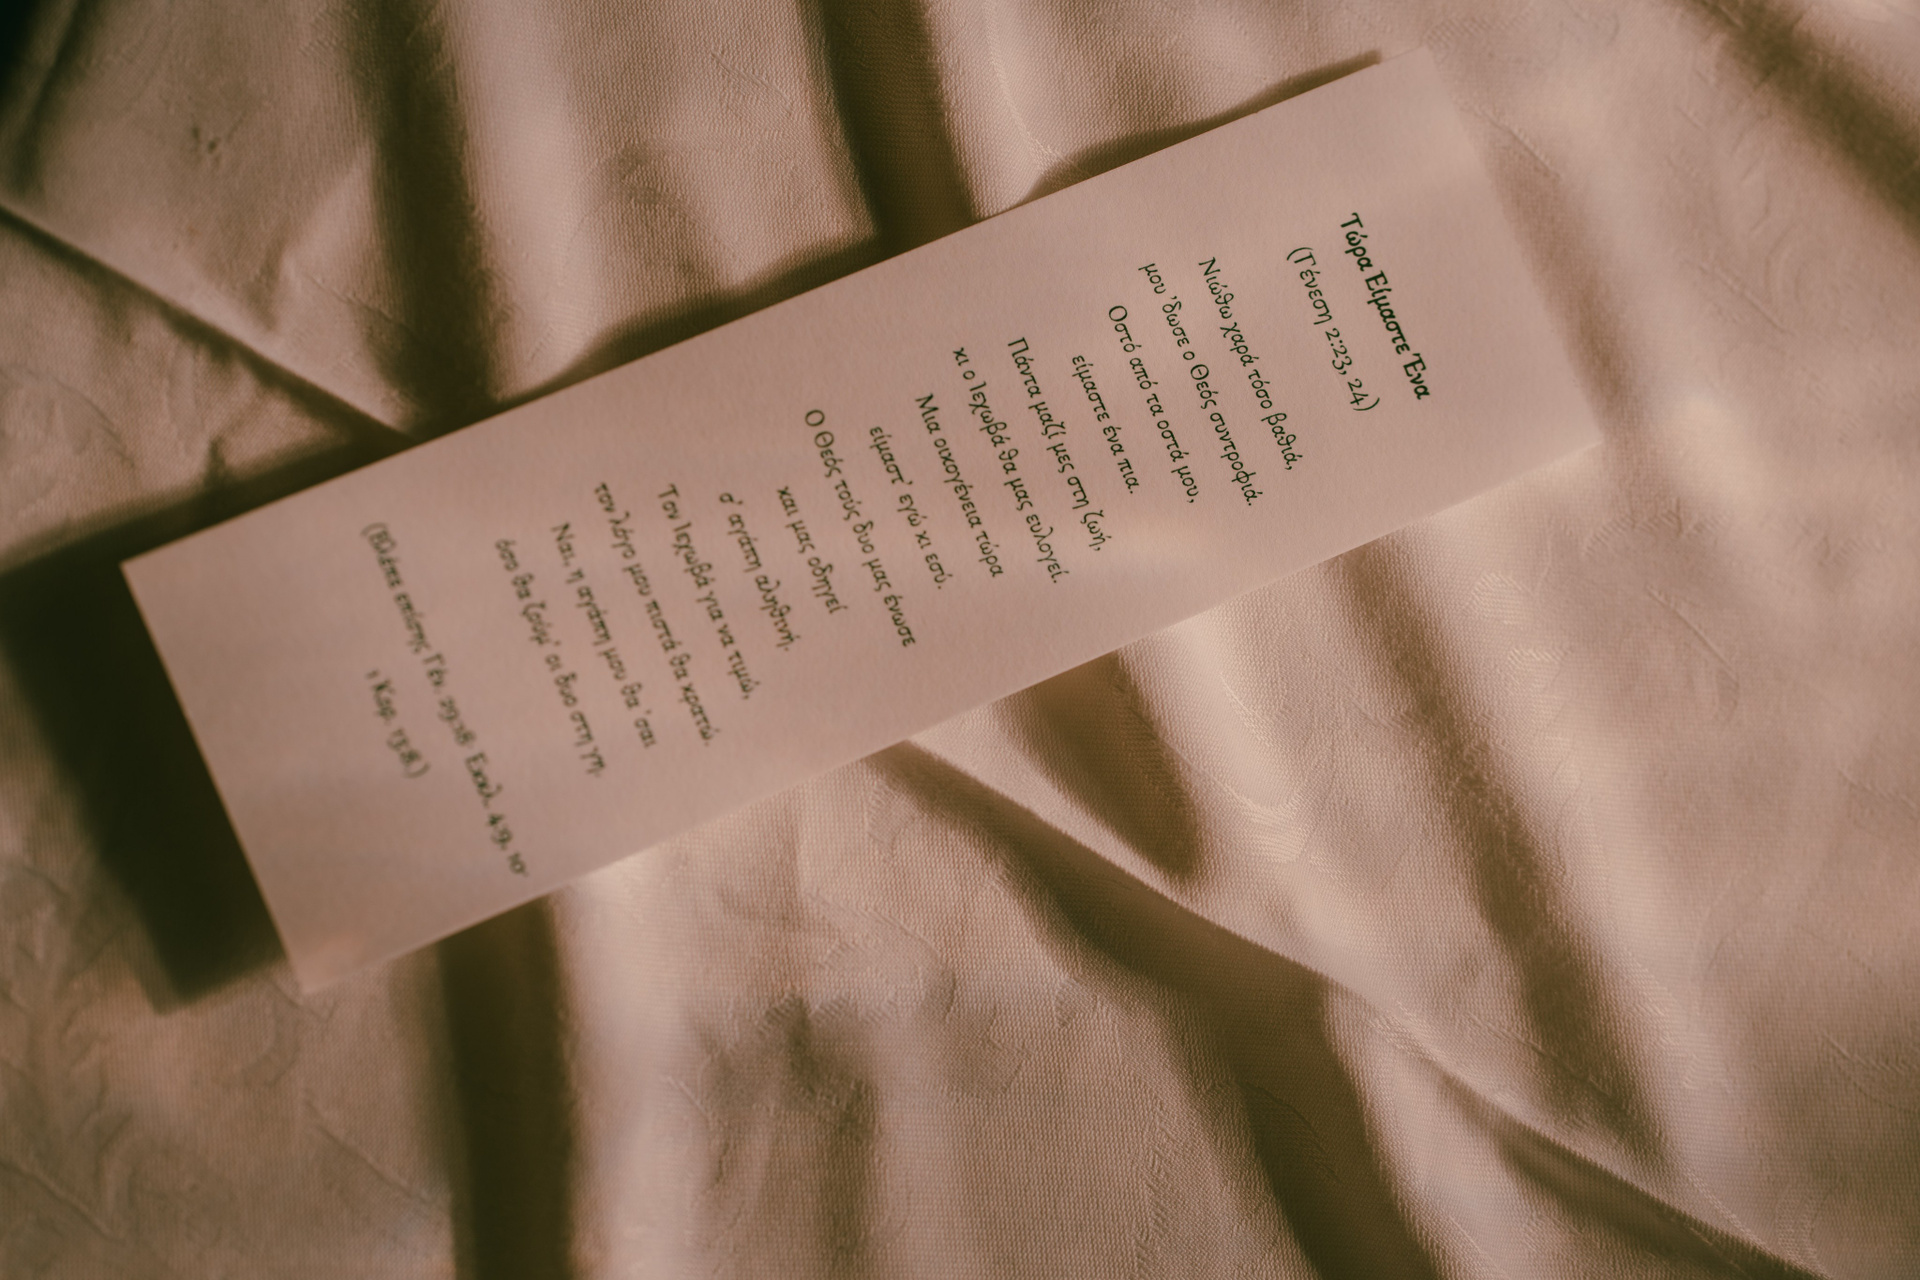 Τώρα Είμαστε Ένα
(Γένεση 2:23, 24)
Νιώθω χαρά τόσο βαθιά,
μου ’δωσε ο Θεός συντροφιά.
Οστό από τα οστά μου,
είμαστε ένα πια.
Πάντα μαζί μες στη ζωή,
κι ο Ιεχωβά θα μας ευλογεί.
Μια οικογένεια τώρα
είμαστ’ εγώ κι εσύ.
Ο Θεός τούς δυο μας ένωσε
και μας οδηγεί
σ’ αγάπη αληθινή.
Τον Ιεχωβά για να τιμώ,
τον λόγο μου πιστά θα κρατώ.
Ναι, η αγάπη μου θα ’σαι
όσο θα ζούμ’ οι δυο στη γη.
(Βλέπε επίσης Γέν. 29:18· Εκκλ. 4:9, 10·
1 Κορ. 13:8.)